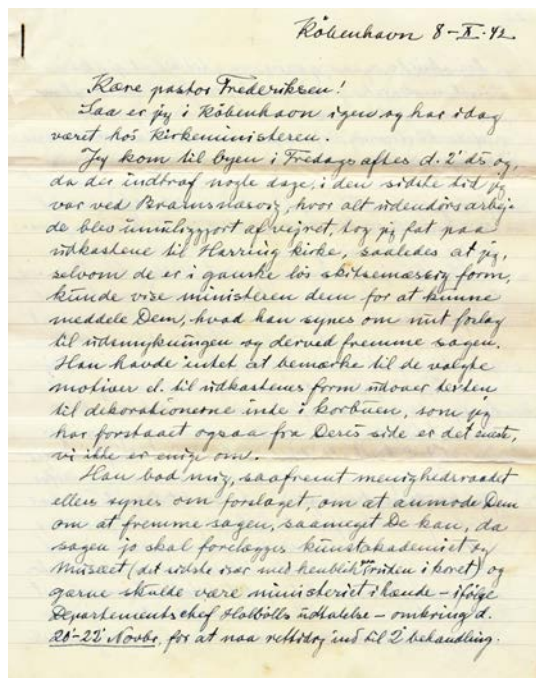 København 8-X-42.
Kære pastor Frederiksen!
Saa er jeg i København igen og har idag
været hos Kirkeministeren.
Jeg kom til byen i Fredags aftes d. 2' ds og,
da der indtraf nogle dage, i den sidste tid jeg
var ved Bramsnæsvig, hvor alt udendørs arbej-
de blev umuliggjort af vejret, tog jeg fat paa
udkastene til Harring kirke, saaledes at jeg,
selvom de er i ganske løs skitsemæssig form,
kunde vise ministeren dem for at kunne
meddele Dem, hvad han synes om mit forslag
til udsmykningen og derved fremme sagen.
Han havde intet at bemærke til de valgte
motiver el. til udkastenes form udover texten
til dekorationerne inde i korbuen, som jeg
har forstaaet ogsaa fra Deres side er det eneste,
vi ikke er enige om.
Han bad mig, saafremt menighedsraadet
ellers synes om forslaget, om at anmode Dem
om at fremme sagen, saameget De kan, da
sagen jo skal forelægges kunstakademiet og
Musæet (det sidste især med henblik paa ruden i koret) og
gerne skulde være ministeriet i hænde - ifølge
Departementschef Holbølls udtalelse - omkring d.
20'-22' Novbr. for at naa rettidig ind til 2' behandling.